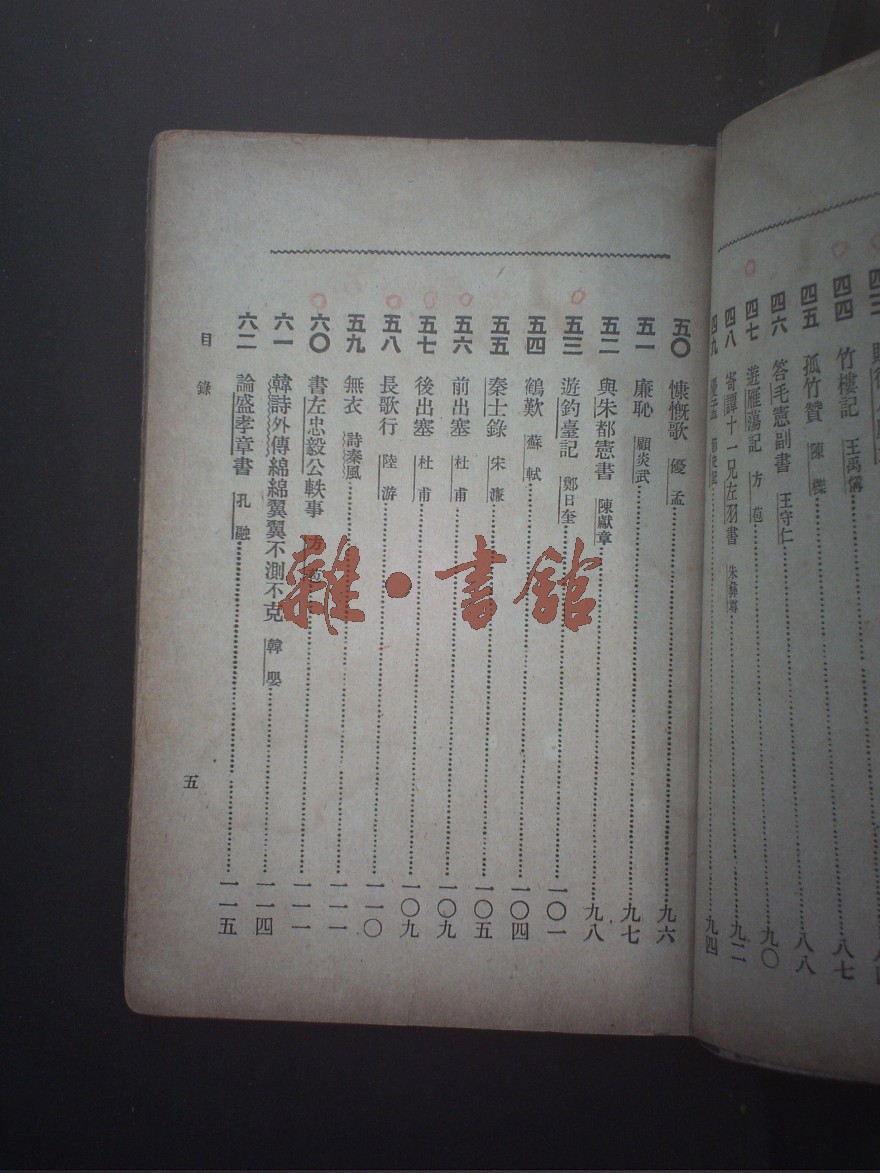 四四 竹樓記 王禹偁 八七
四五 孤竹贊 陳櫟 八八
四六 答毛憲副書 王守仁 九〇
四七 遊雁蕩記 方苞
四八 寄譚十一兄左羽書 朱彝尊 九二
四九 九四
五〇 慷慨歌 優孟 九六
五一 廉恥 顧炎武 九七
五二 與朱都憲書 陳獻章 九八
五三 遊釣臺記 鄭日奎 一〇一
五四 鶴歎 蘇軾 一〇四
五五 秦士錄 宋濂 一〇五
五六 前出塞 杜甫 一〇九
五七 後出塞 杜甫 一〇九
五八 長歌行 陸游 一一〇
五九 無衣 詩秦風 一一一
六〇 書左忠毅公軼事 方苞 一一一
六一 韓詩外傳綿綿翼翼不測不克 韓嬰 一一四
六二 論盛孝章書 孔融 一一五
目錄
五
雜·書館